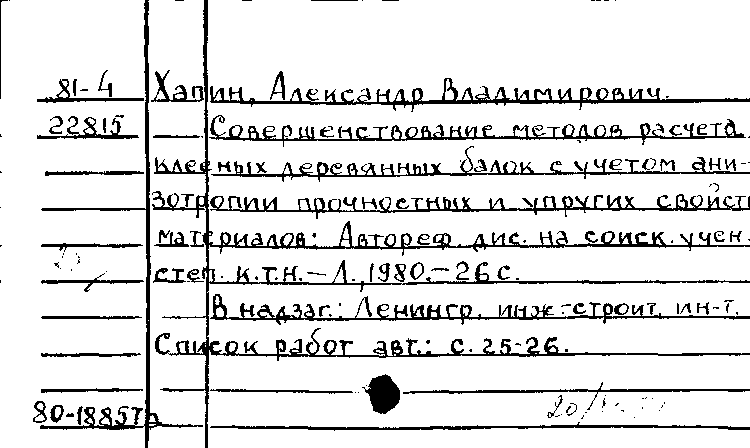 81-4 Хапин, Александр Владимирович.
22815 Совершенствование методов расчета
клееных деревянных балок с учетом ани-
зотропии прочностных и упругих свойст
материалов: Автореф. дис. на соиск. учен.
степ. к.т.н. – Л., 1980. – 26 с.
В надзаг.: Ленингр. инж.-строит. ин-т.
Список работ авт.: с. 25-26.
80-18857
20/